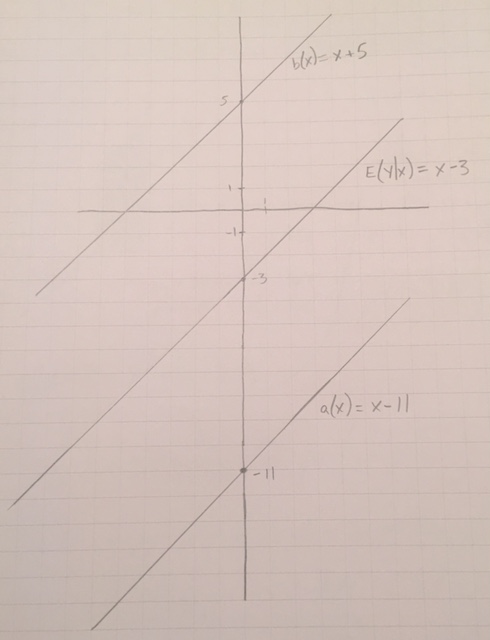 b(x) = x+5
5
E(y|x) = x-3
1
1
-1
-3
a(x) = x-11
-11